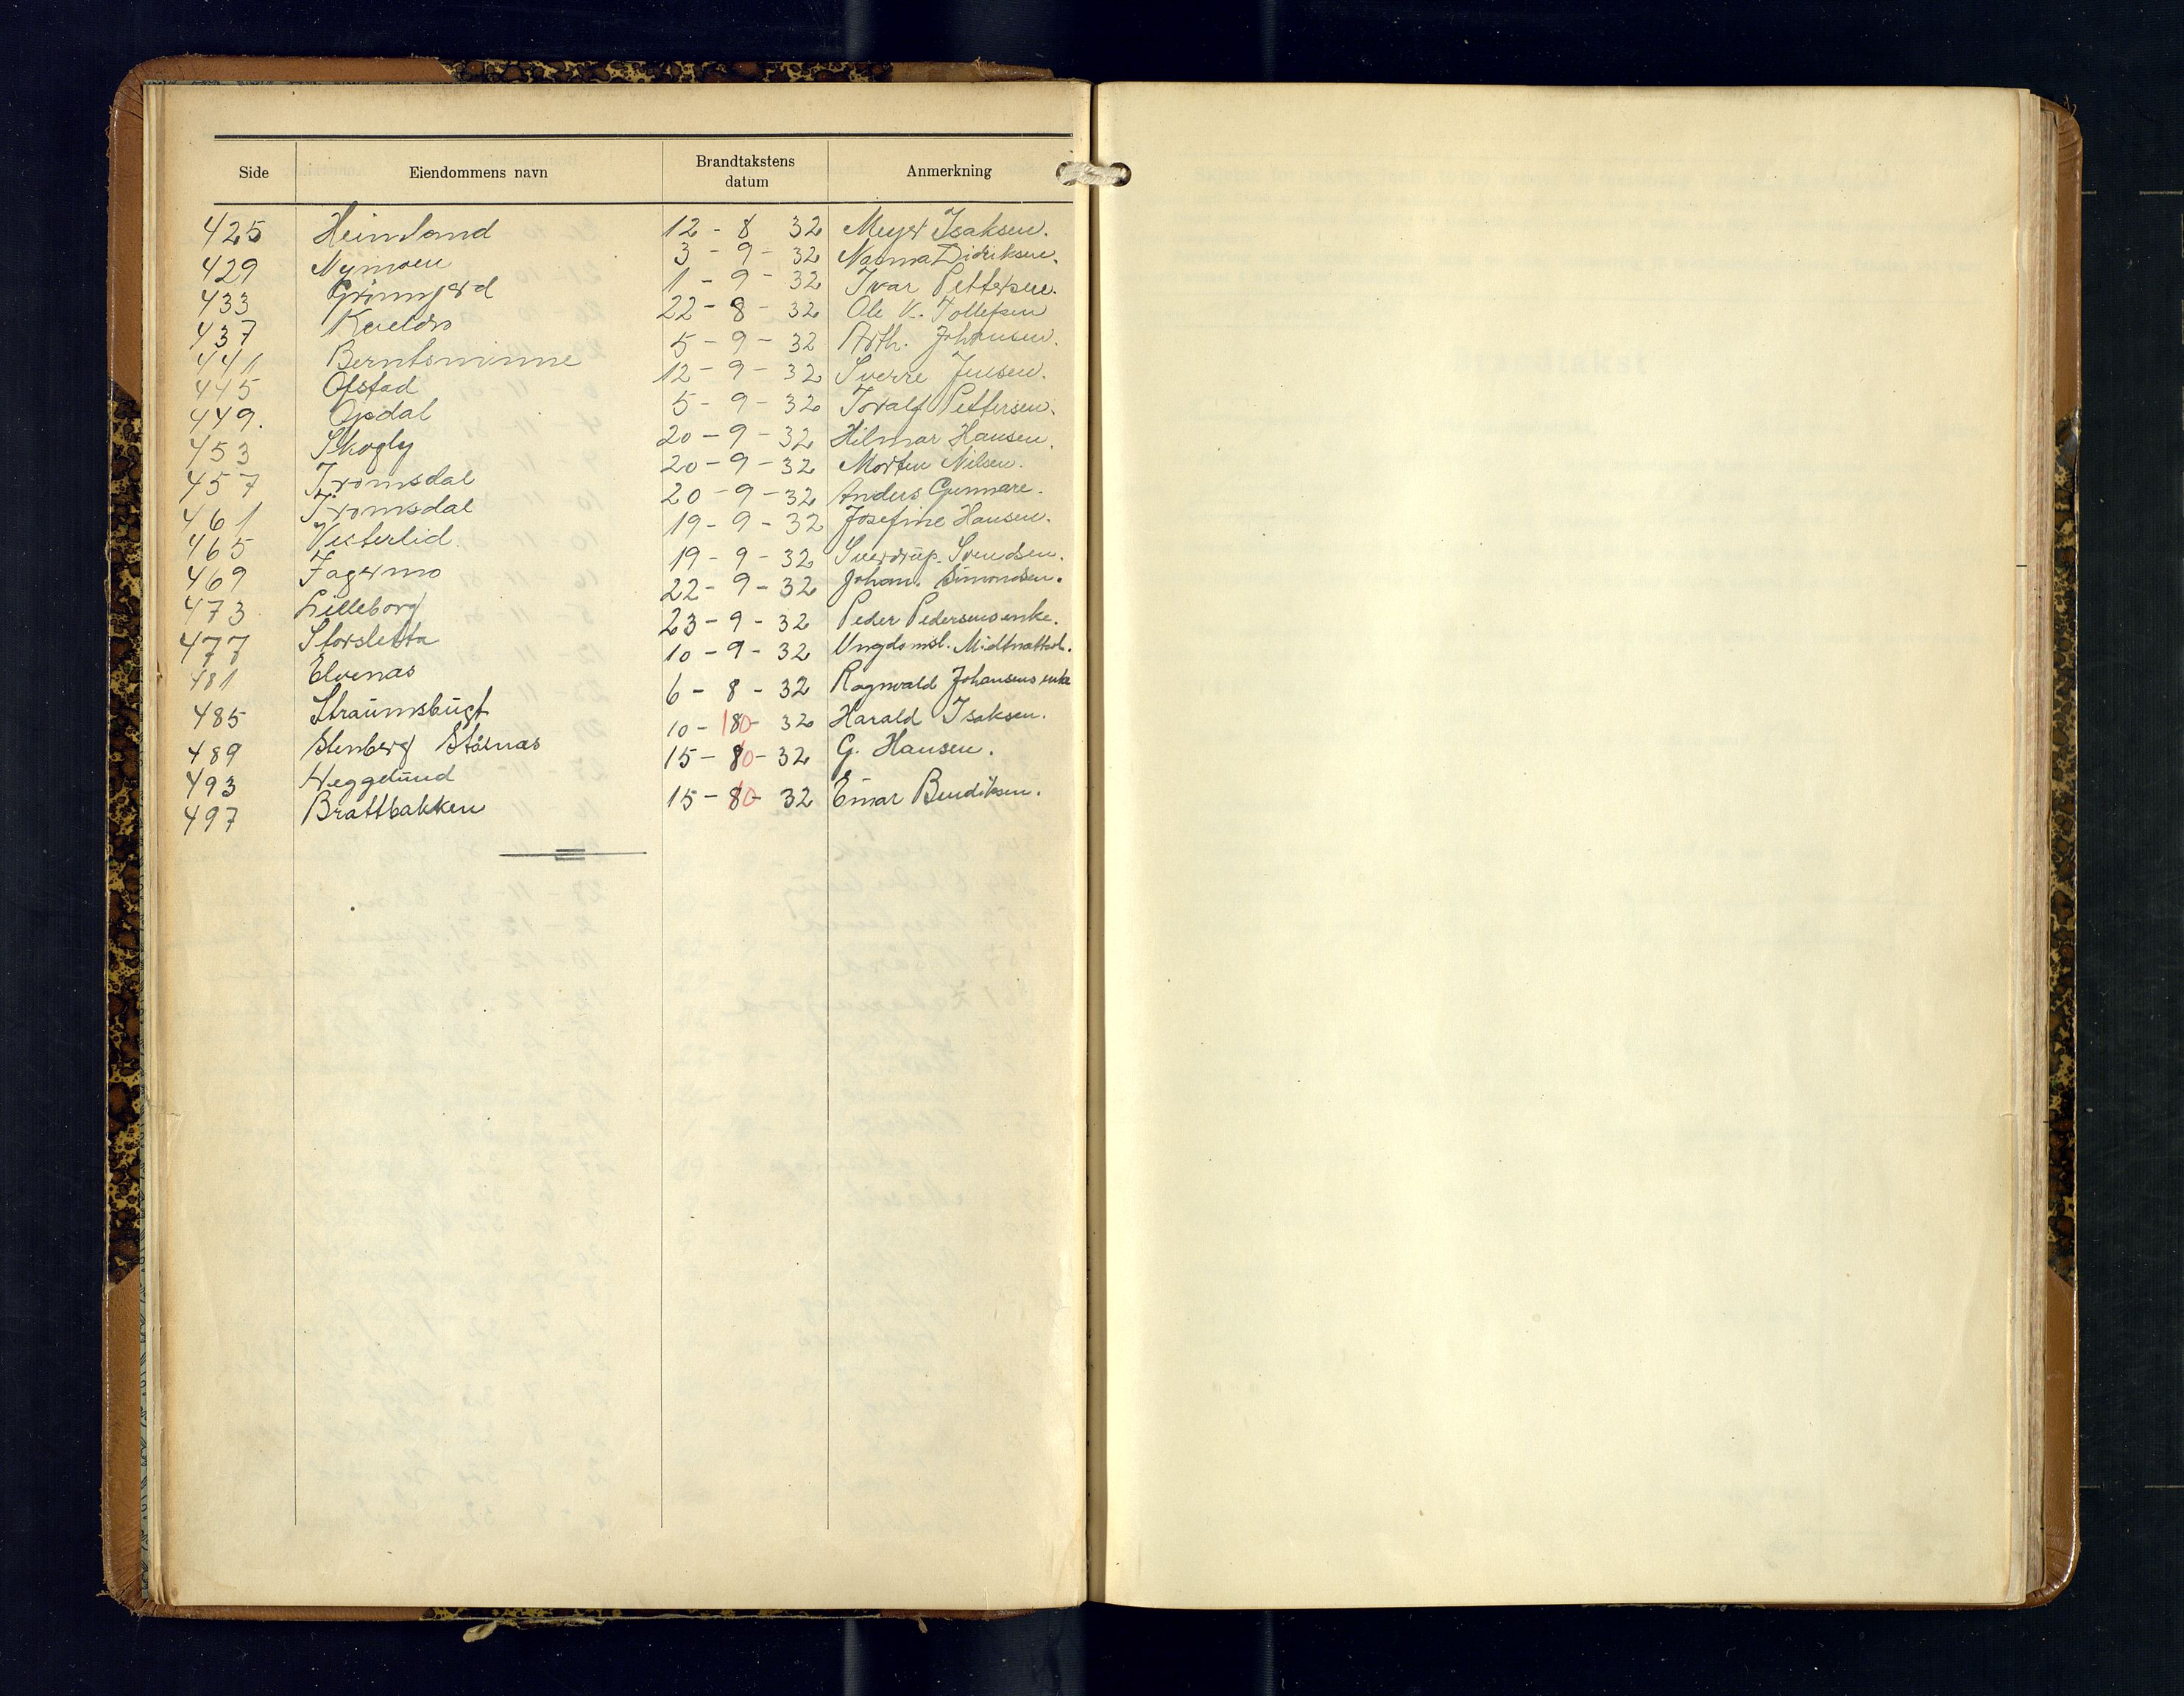 Side Eiendommens navn Brandtakstens datum Anmerkning
425 Heimland 12 - 8 32 Meyer Isaksen.
429 Nymoen 3 - 9 - 32 Nanna Didriksen.
433 Grönnjord 1 - 9 - 32 Ivar Pettersen.
437 Kveldro 22 - 8 - 32 Ole K. Tollefsen
441 Berntsminne 5 - 9 - 32 Arth. Johansen.
445 Ofstad 12 - 9 - 32 Sverre Jensen.
449. Opdal 5 - 9 - 32 Toralf Pettersen.
453 Skogly 20 - 9 - 32 Hilmar Hansen.
457 Tromsdal 20 - 9 - 32 Morten Nilsen.
461 Tromsdal 20 - 9 - 32 Anders Gunnare.
465 Vesterlid 19 - 9 - 32 Josefine Hansen.
469 Fagermo 19 - 9 - 32 Sverdrup. Svendsen.
473 Lilleborg 22 - 9 - 32 Johan. Simonsen.
477 Storsletta 23 - 9 - 32 Peder Pedersens enke.
481 Elvenas 10 - 9 - 32 Ungdomsl. Midtnattsol.
485 Straumsbugt 6 - 8 - 32 Ragnvald Johansens enke
489 Stenberg Störnas 10 - 10 - 32 Harald Isaksen.
493 Heggelund 15 - 10 - 32 G. Hansen.
497 Brattbakken 15 - 10 - 32 Einar Bendiksen.